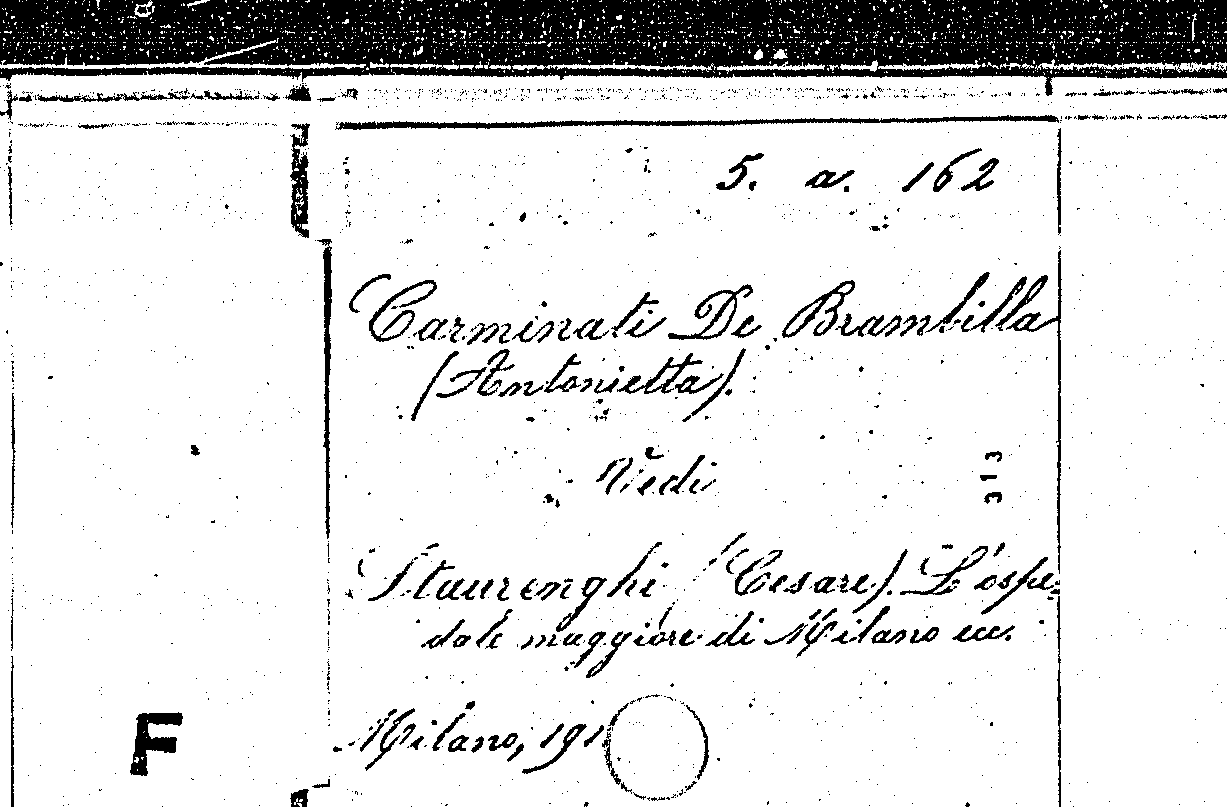 5. a. 162
Carminati De Brambilla
(Antonietta).
Vedi
313
Staurenghi (Cesare). L'ospe-
dale maggiore di Milano ecc.
F
Milano, 191